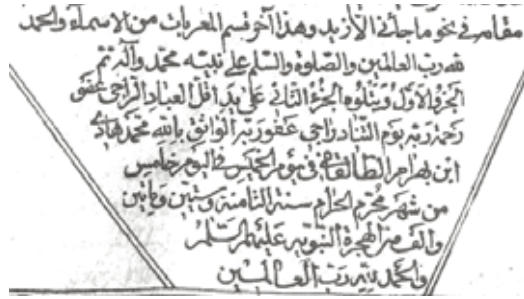 مقامه في نحو ما جائني الا زيد وهذا آخر قسم المعربات من الاسماء والحمد
لله رب العالمين والصلوة والسلم على نبيه محمد وآله تم
الجزء الاول ويتلوه الجزء الثاني على يد اقل العباد الراجي عفو
رحمة ربه يوم التناد راجي عفو ربه الواثق بالله محمد هادي
ابن بهرام الطالقاني في يوم الخميس في اليوم خامس
من شهر محرم الحرام سنة الثامنة وستين ومأتين
والف من الهجرة النبويه عليه السلم
والحمد لله رب العالمين